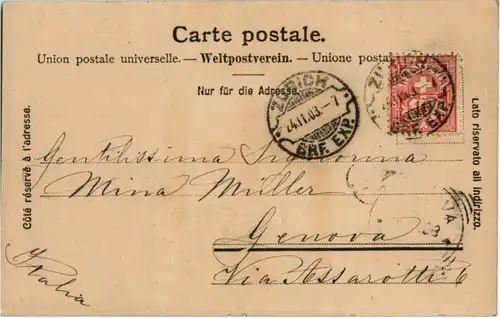 Carte postale.
Union postale universelle. — Weltpostverein. — Unione postale
Nur für die Adresse.
Côté réservé à l'adresse.
Lato riservato all indirizzo.
ZÜRICH
24.11.03.-7
BRF. EXP.
BRF. EXP.
Gentilissima Signorina
Mina Müller
Genova
Via Assarotti 6
Italia